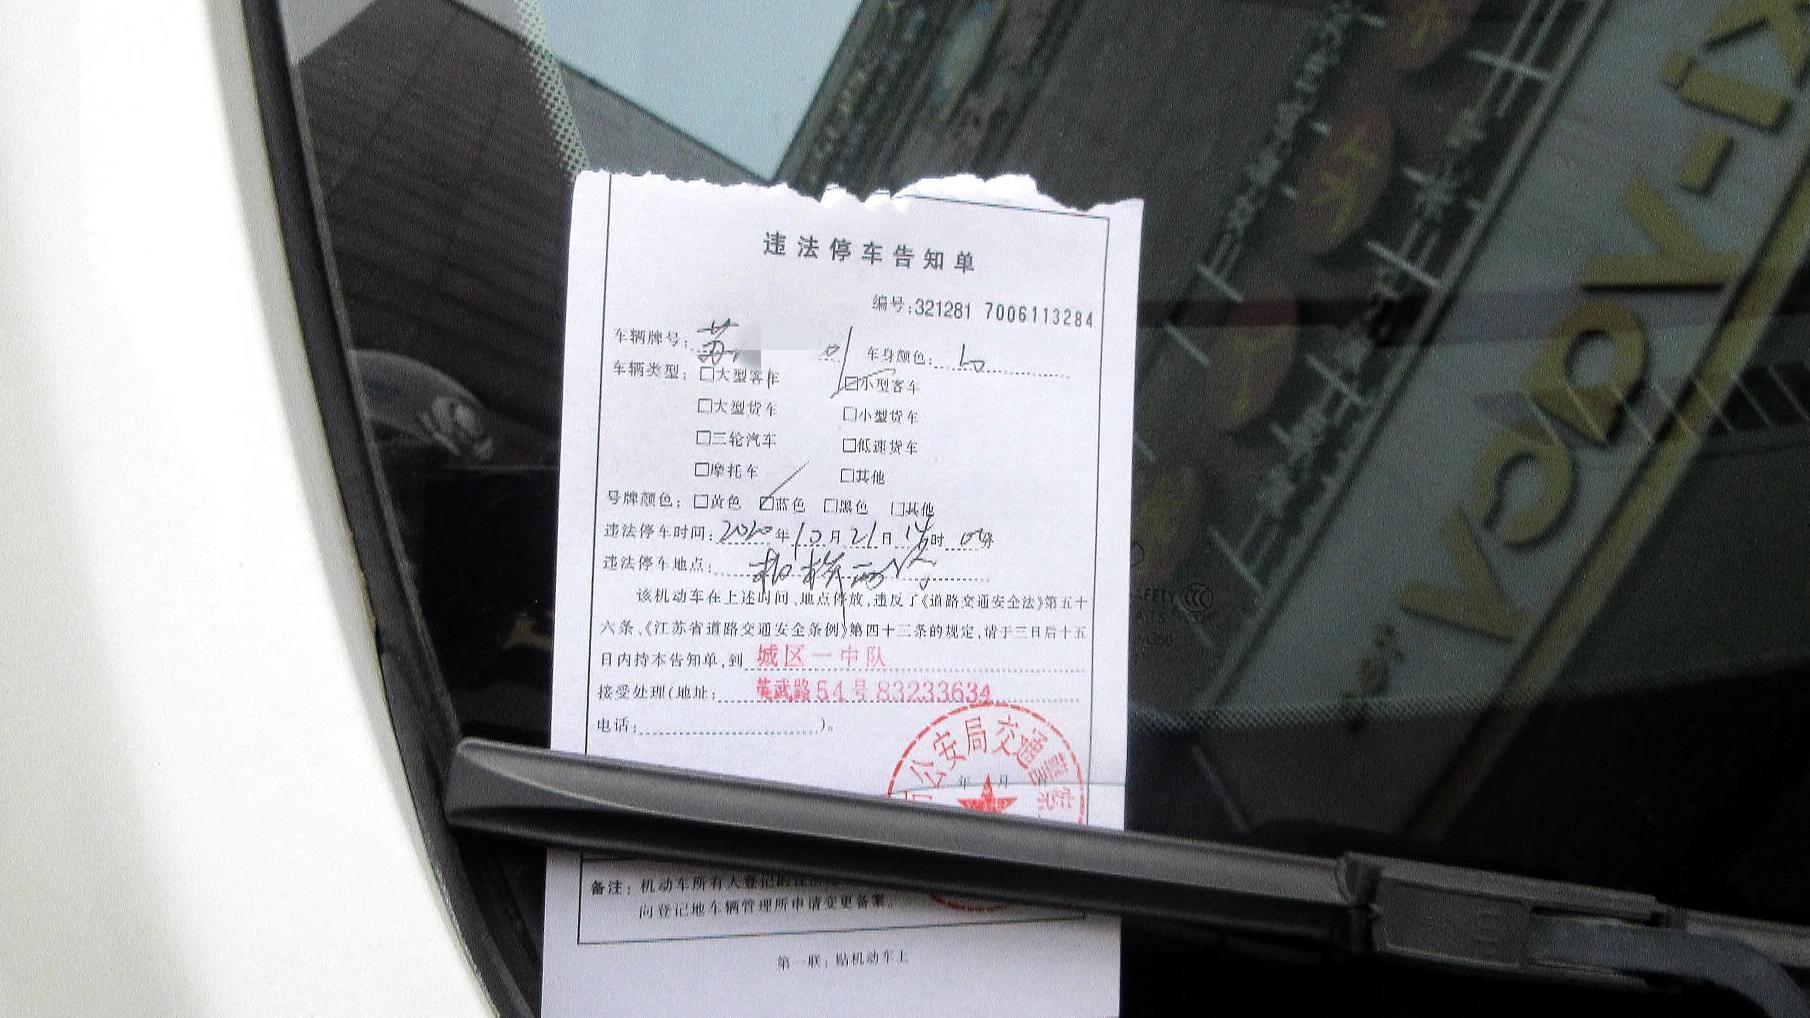 违法停车告知单
编号:321281 7006113284
车辆牌号: 苏 车身颜色: 白
车辆类型: □大型客车 ☑小型客车
□大型货车 □小型货车
□三轮汽车 □低速货车
□摩托车 □其他
号牌颜色: □黄色 ☑蓝色 □黑色 □其他
违法停车时间: 2020年10月21日 时 分
违法停车地点:
该机动车在上述时间、地点停放,违反了《道路交通安全法》第五十
六条、《江苏省道路交通安全条例》第四十三条的规定,请于三日后十五
日内持本告知单,到 城区一中队
接受处理(地址: 英武路54号83233634
电话: )。
公安局交通警察
年 月
备注: 机动车所有人登记的住
向登记地车辆管理所申请变更备案。
第一联: 贴机动车上
YCPK-iX
SAFETY CCC